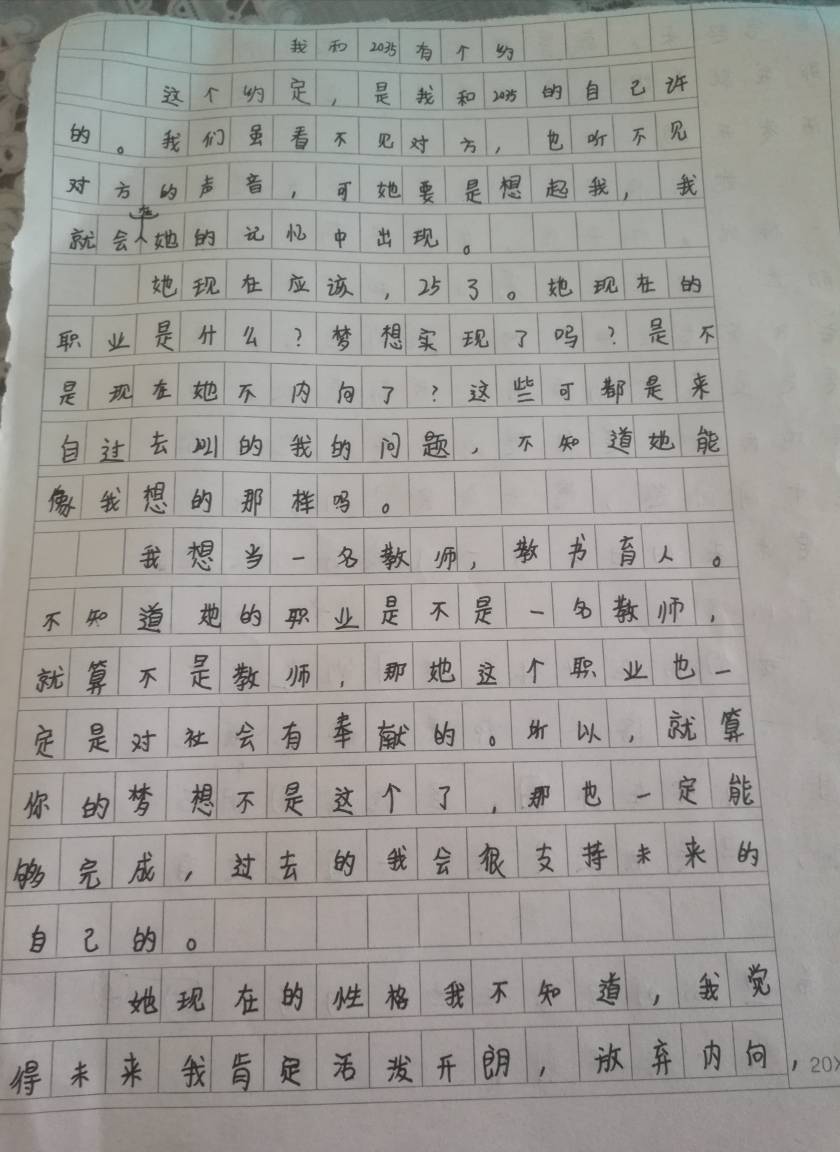 我和2035有个约
这个约定，是我和2035的自己许
的。我们虽看不见对方，也听不见
对方的声音，可她要是想起我，我
就会在她的记忆中出现。
她现在应该，25了。她现在的
职业是什么？梦想实现了吗？是不
是现在她不内向了？这些可都是来
自过去2021的我的问题，不知道她能
像我想的那样吗。
我想当一名教师，教书育人。
不知道她的职业是不是一名教师，
就算不是教师，那她这个职业也一
定是对社会有奉献的。所以，就算
你的梦想不是这个了，那也一定能
够完成，过去的我会很支持未来的
自己的。
她现在的性格我不知道，我觉
得未来我肯定活泼开朗，放弃内向，
20×